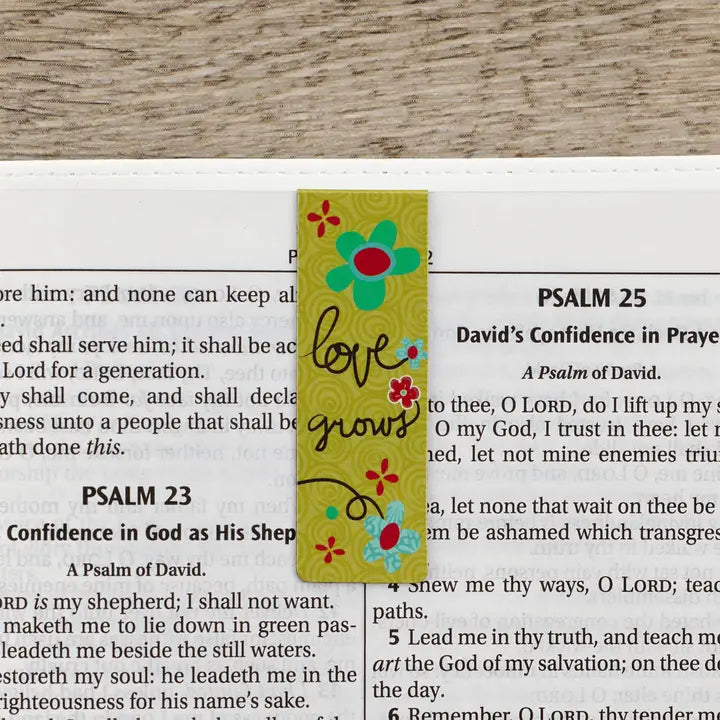 ore him: and none can keep
eed shall serve him; it shall be
Lord for a generation.
y shall come, and shall
sness unto a people that shall
ath done this.
PSALM 23
Confidence in God as His
A Psalm of David.
ORD is my shepherd; I shall not want.
maketh me to lie down in green pas-
leadeth me beside the still waters.
estoreth my soul: he leadeth me in the
righteousness for his name's sake.
love
grows
PSALM 25
David's Confidence in Praye
A Psalm of David.
to thee, O LORD, do I lift up my
O my God, I trust in thee: let
let not mine enemies
let none that wait on thee be
em be ashamed which
4 Shew me thy ways, O LORD;
paths.
5 Lead me in thy truth, and teach
art the God of my salvation; on thee
the day.
6 Remember, O LORD, thy tender